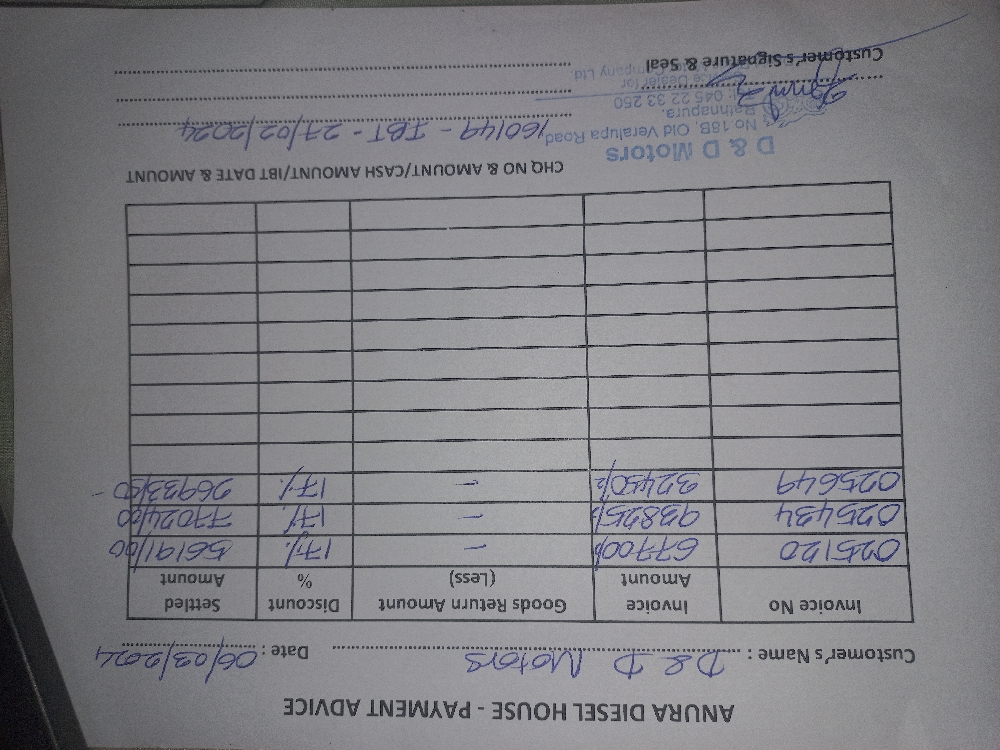 ANURA DIESEL HOUSE - PAYMENT ADVICE
Customer's Name : D & D Motors Date : 06/03/2024
Invoice No Invoice Amount Goods Return Amount (Less) Discount % Settled Amount
025120 67700/- - 17% 56191/00
025434 93825/- - 17% 77024/00
025649 32450/- - 17% 26933/50 -
CHQ NO & AMOUNT/CASH AMOUNT/IBT DATE & AMOUNT
160149 - IBT - 27/02/2024
D & D Motors
No 18B, Old Veralupa Road
Rathnapura.
045 22 33 250
Dealer for
Company Ltd
Customer's Signature & Seal